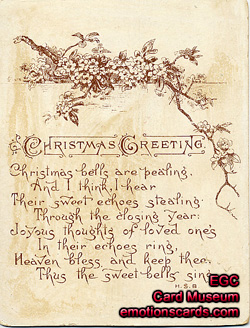 CHRISTMAS GREETING.
Christmas bells are pealing,
And I think, I hear
Their sweet echoes stealing
Through the closing year:
Joyous thoughts of loved ones
In their echoes ring,
Heaven bless and keep thee,
Thus the sweet bells sing.
H.S.B
EGC
Card Museum
emotionscards.com